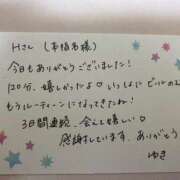 Hさん(本指名様)
今日もありがとうございました!
120分、嬉しかったよ♡いっしょにビールのむ
もうルーティーンになってきたね!
3日間連続 会えて嬉しい♡
感謝しています。ありがとう
ゆき